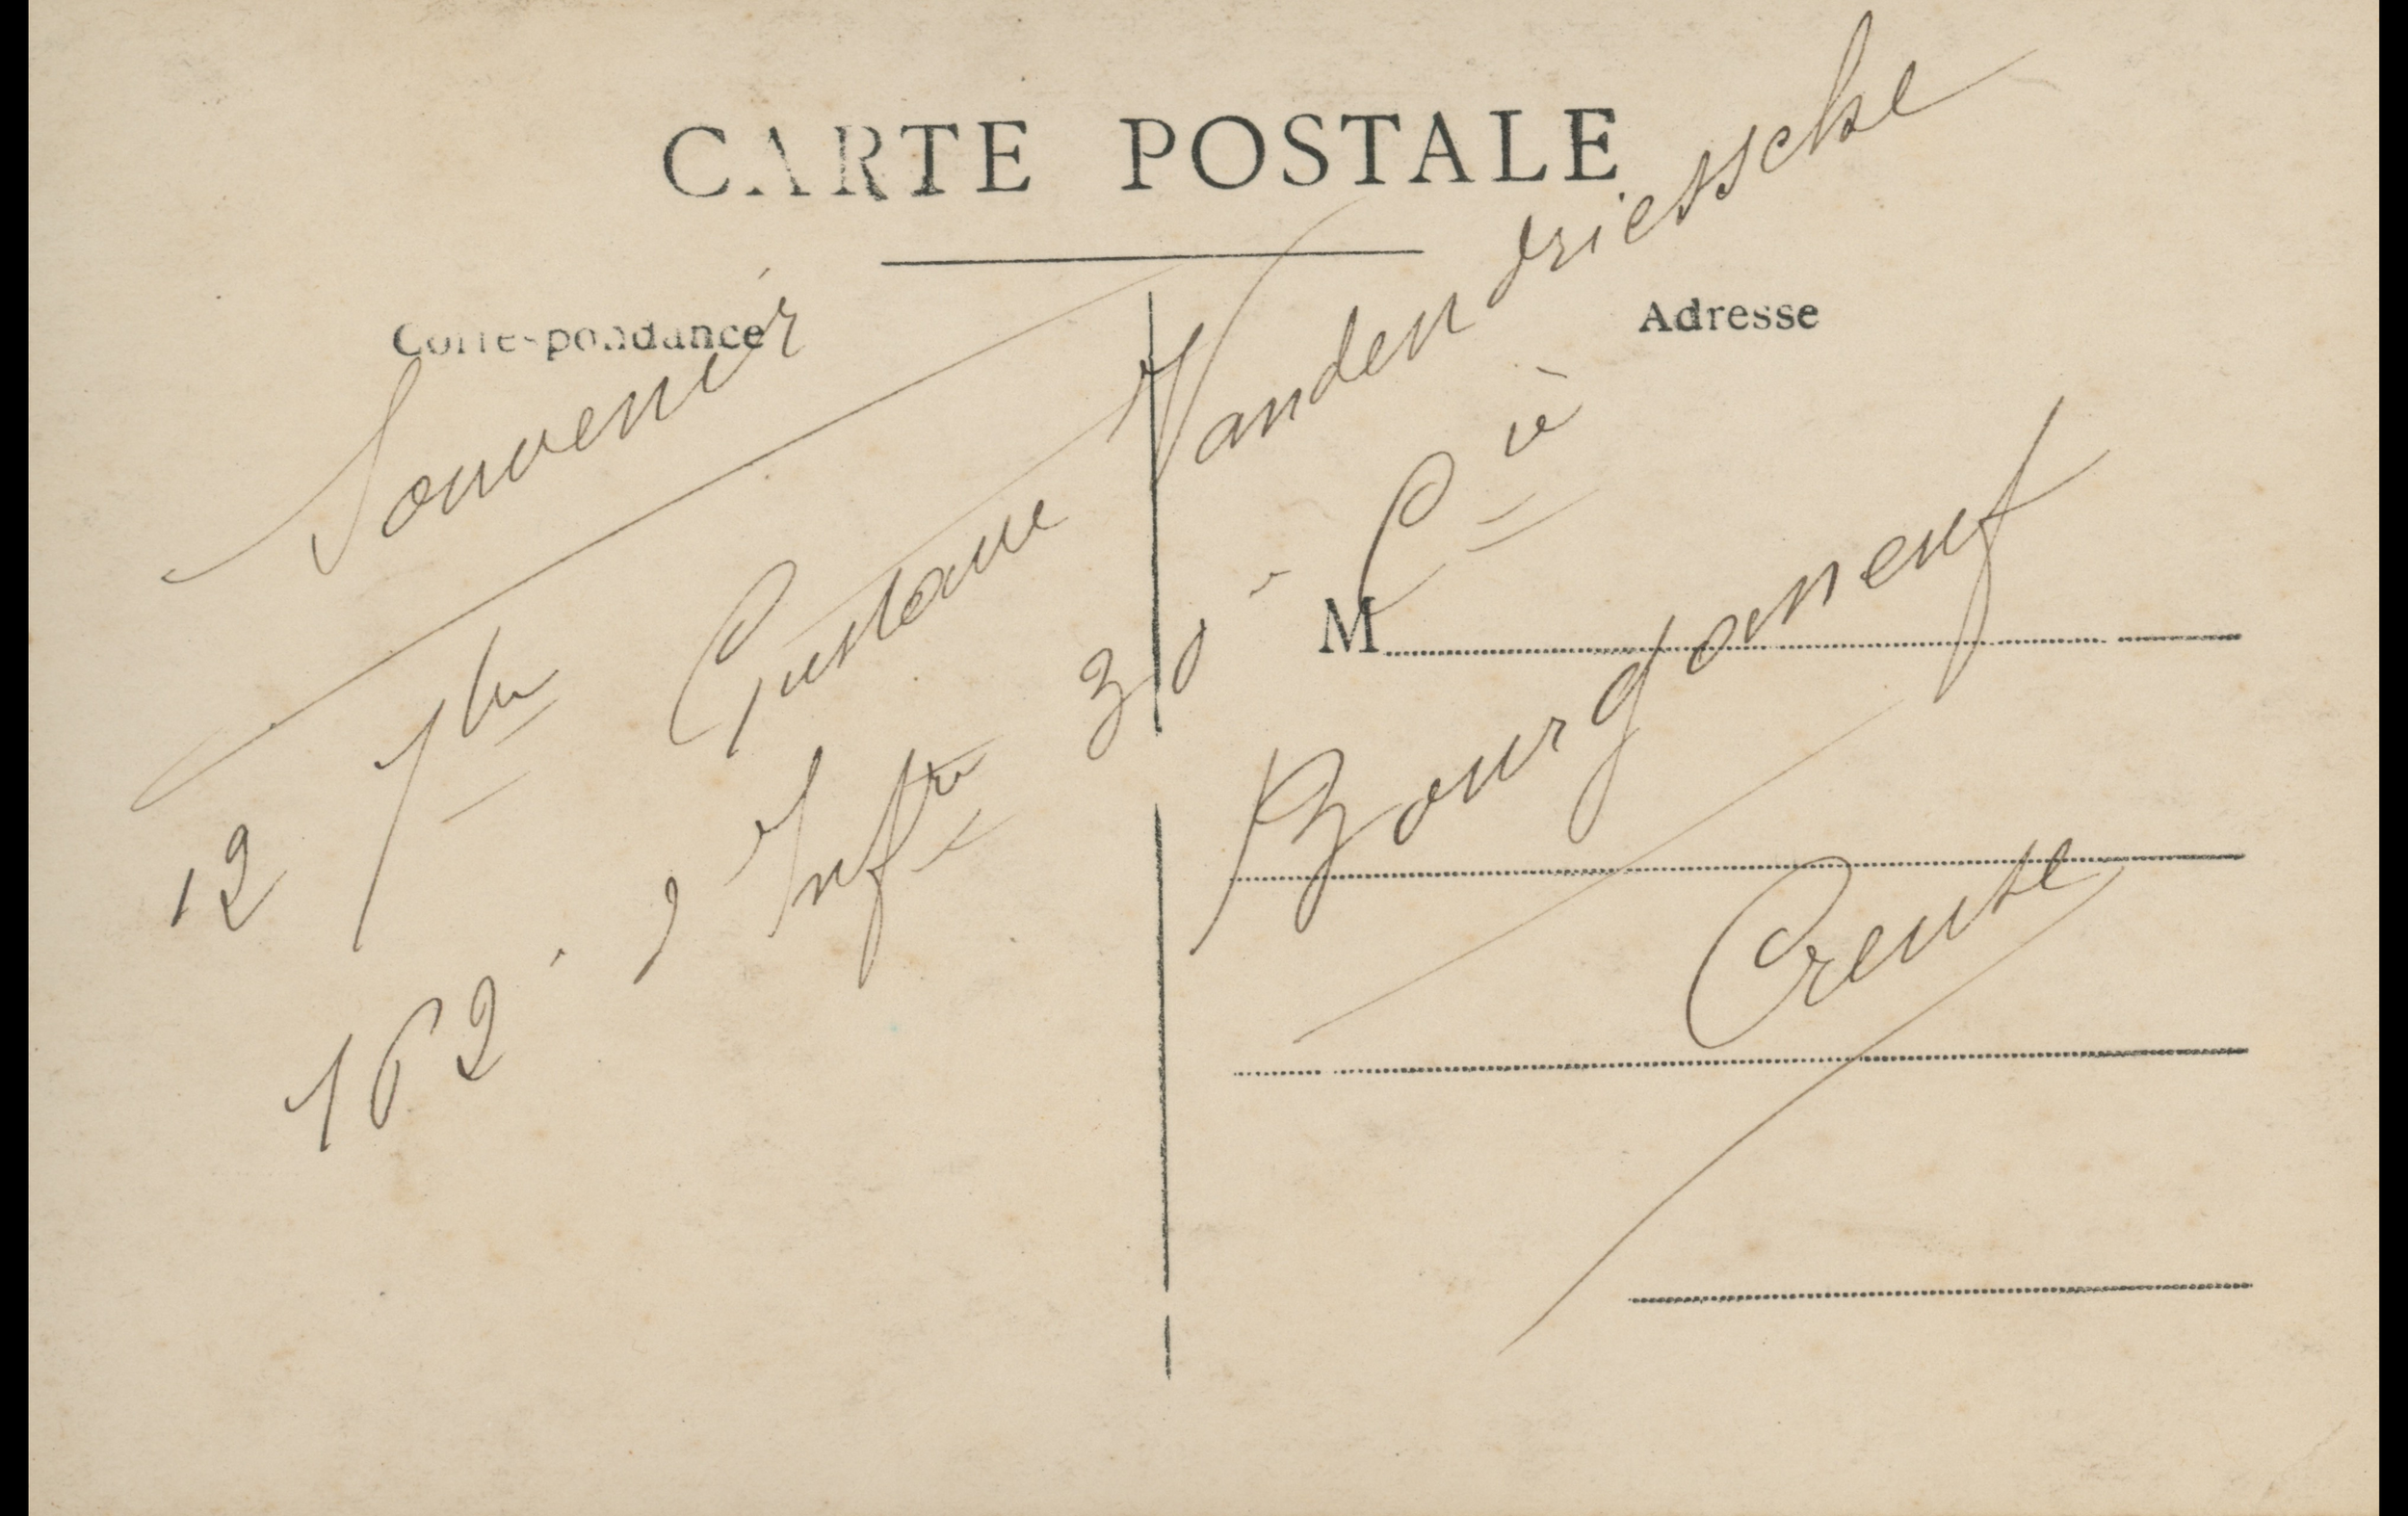 CARTE POSTALE
Correspondance
Adresse
Souvenir
12 7bre Gustave Vandendriessche
162e d'Infrie 30e Cie
M
Bourganeuf
Creuse